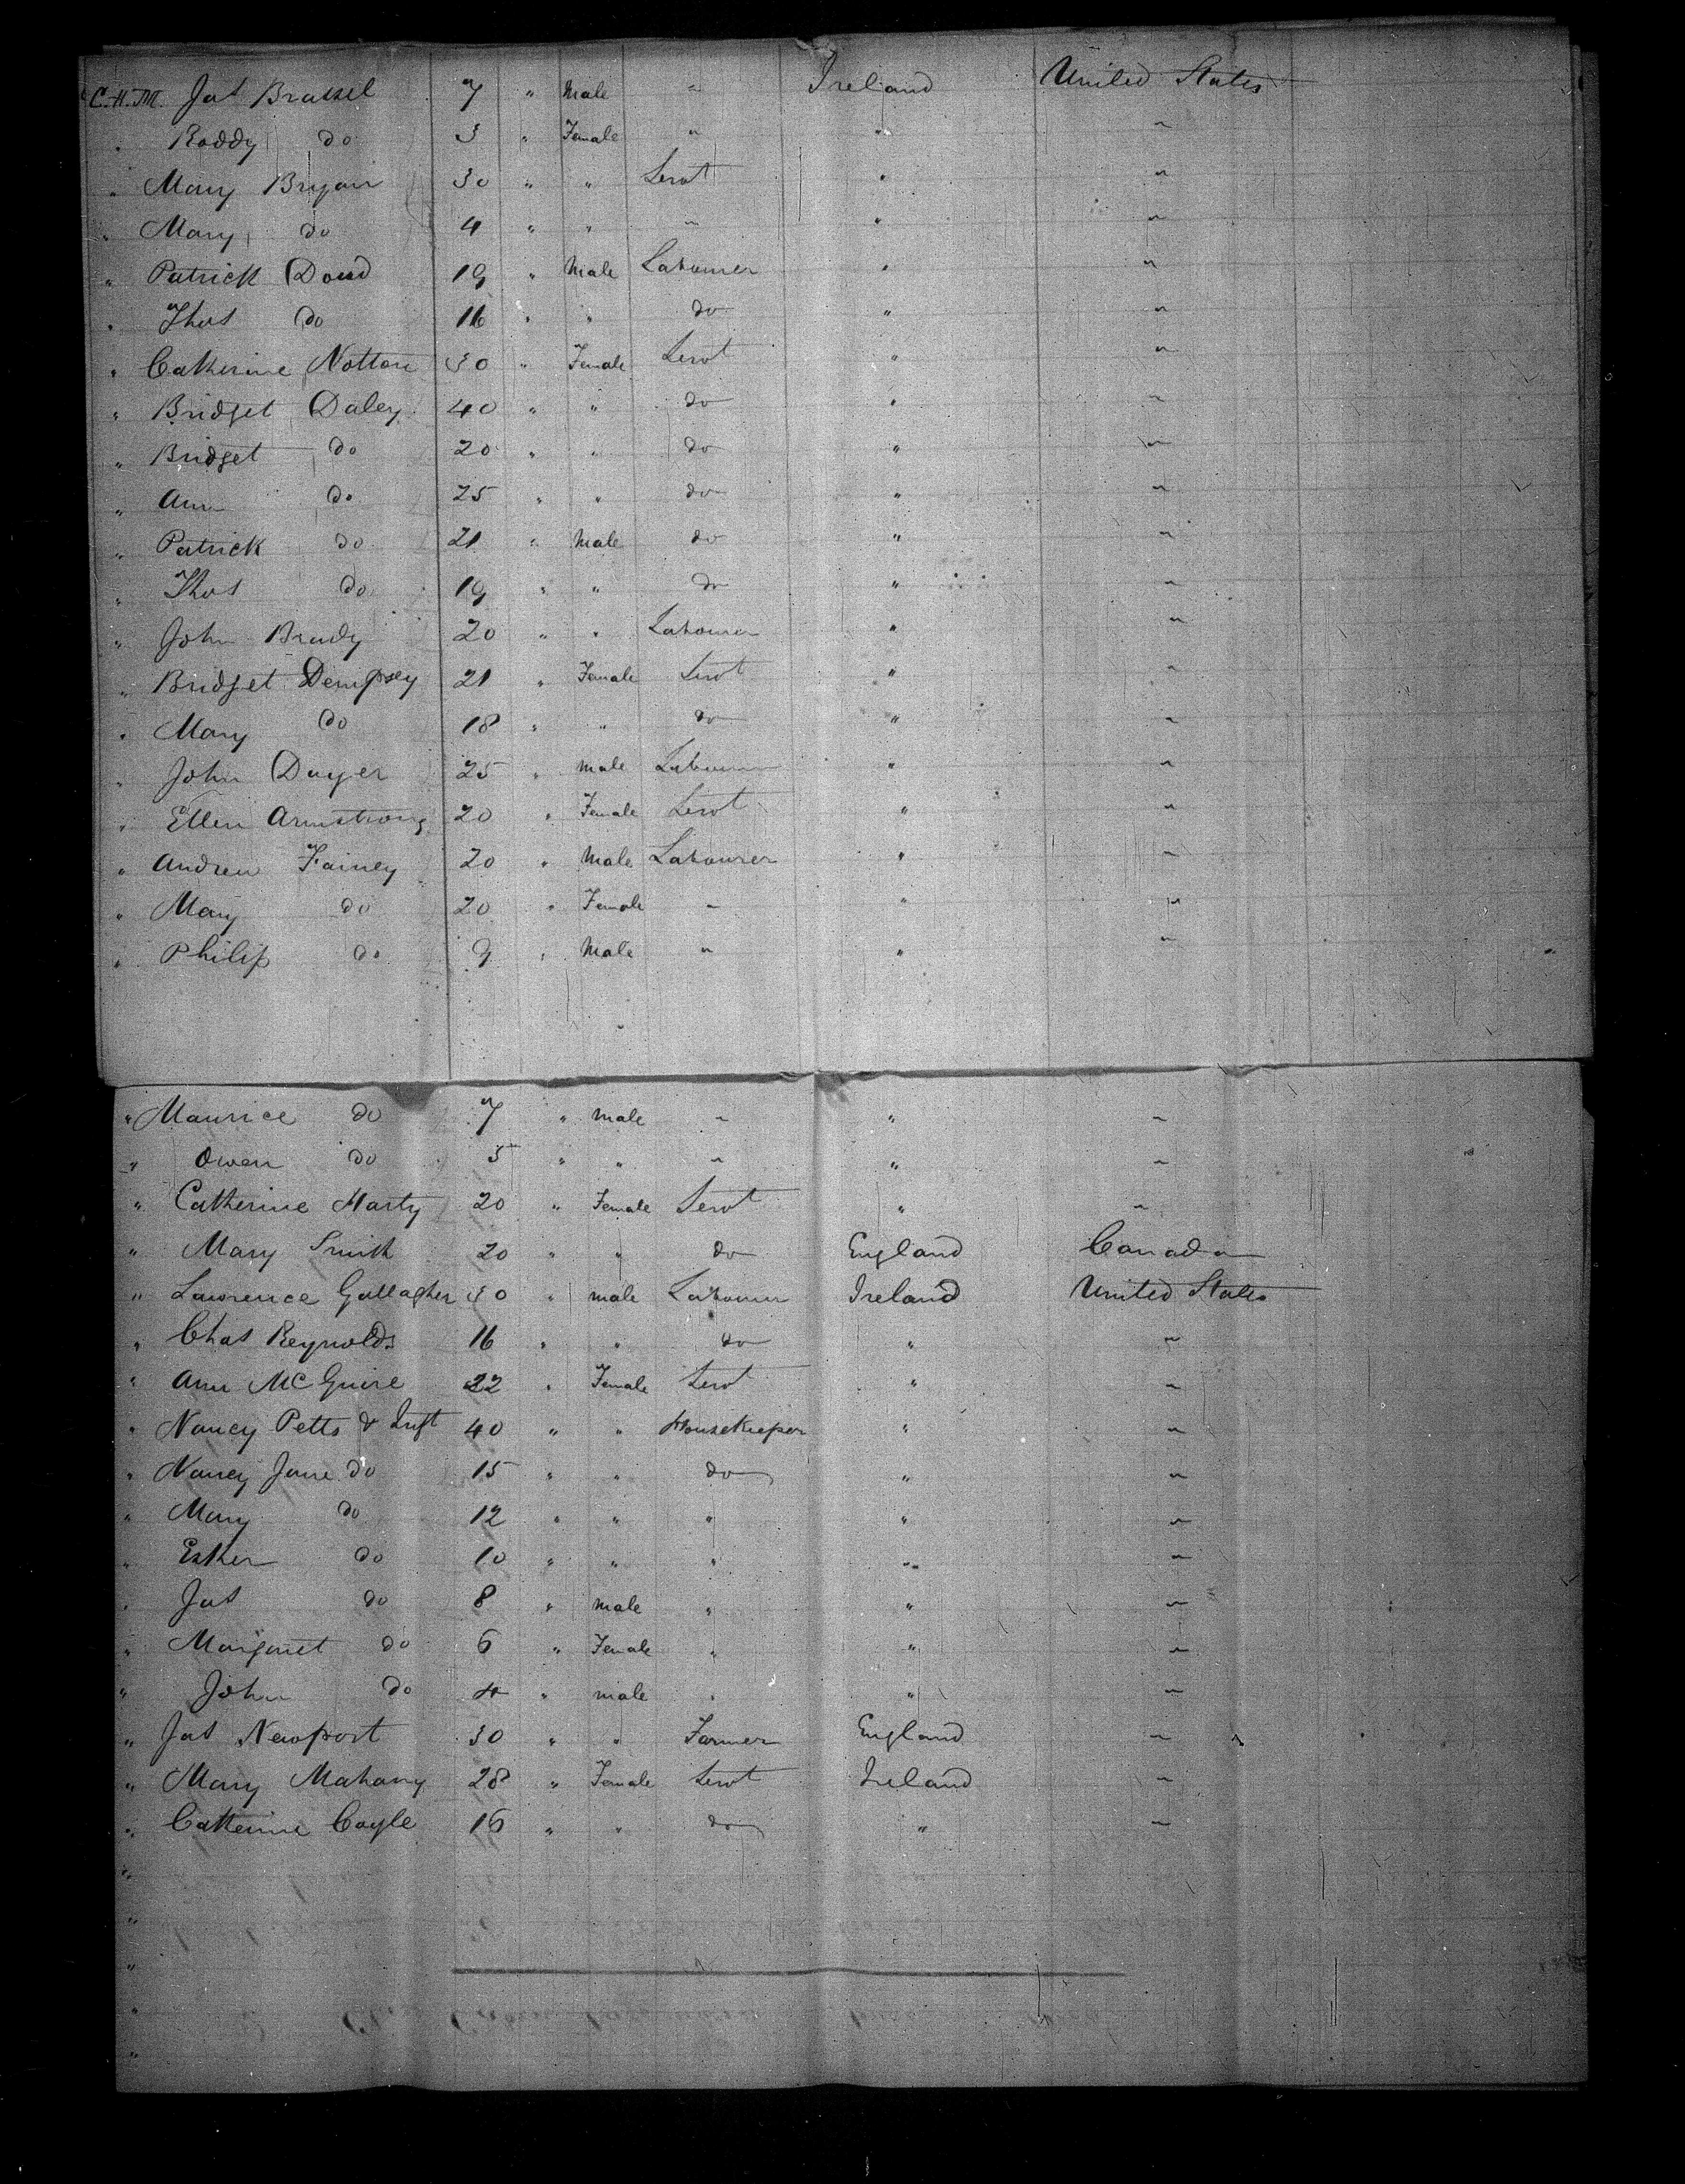 C.H.M. Jas Brassel 7 " Male " Ireland United States
" Roddy do 3 " Female " " "
" Mary Bryan 30 " " Servt " "
" Mary do 4 " " " " "
" Patrick Doud 19 " Male Labourer " "
" Thos do 16 " " do " "
" Catherine Notton 30 " Female Servt " "
" Bridget Daley 40 " " do " "
" Bridget do 20 " " do " "
" Ann do 25 " " do " "
" Patrick do 21 " Male do " "
" Thos do 19 " " do " "
" John Brady 20 " " Labourer " "
" Bridget Dempsey 21 " Female Servt " "
" Mary do 18 " " do " "
" John Dwyer 25 " Male Labourer " "
" Ellen Armstrong 20 " Female Servt " "
" Andrew Fainey 20 " Male Labourer " "
" Mary do 20 " Female " " "
" Philip do 9 " Male " " "
" Maurice do 7 " Male " " "
" Owen do 5 " " " " "
" Catherine Harty 20 " Female Servt " "
" Mary Smith 20 " " do England Canada
" Lawrence Gallagher 30 " Male Labourer Ireland United States
" Chas Reynolds 16 " " do " "
" Ann McGuire 22 " Female Servt " "
" Nancy Petts & Inft 40 " " Housekeeper " "
" Nancy Jane do 15 " " do " "
" Mary do 12 " " " " "
" Esther do 10 " " " " "
" Jas do 8 " Male " " "
" Margaret do 6 " Female " " "
" John do 4 " Male " " "
" Jas Newport 30 " " Farmer England "
" Mary Mahany 28 " Female Servt Ireland "
" Catherine Coyle 16 " " do " "
"
"
"
"
"